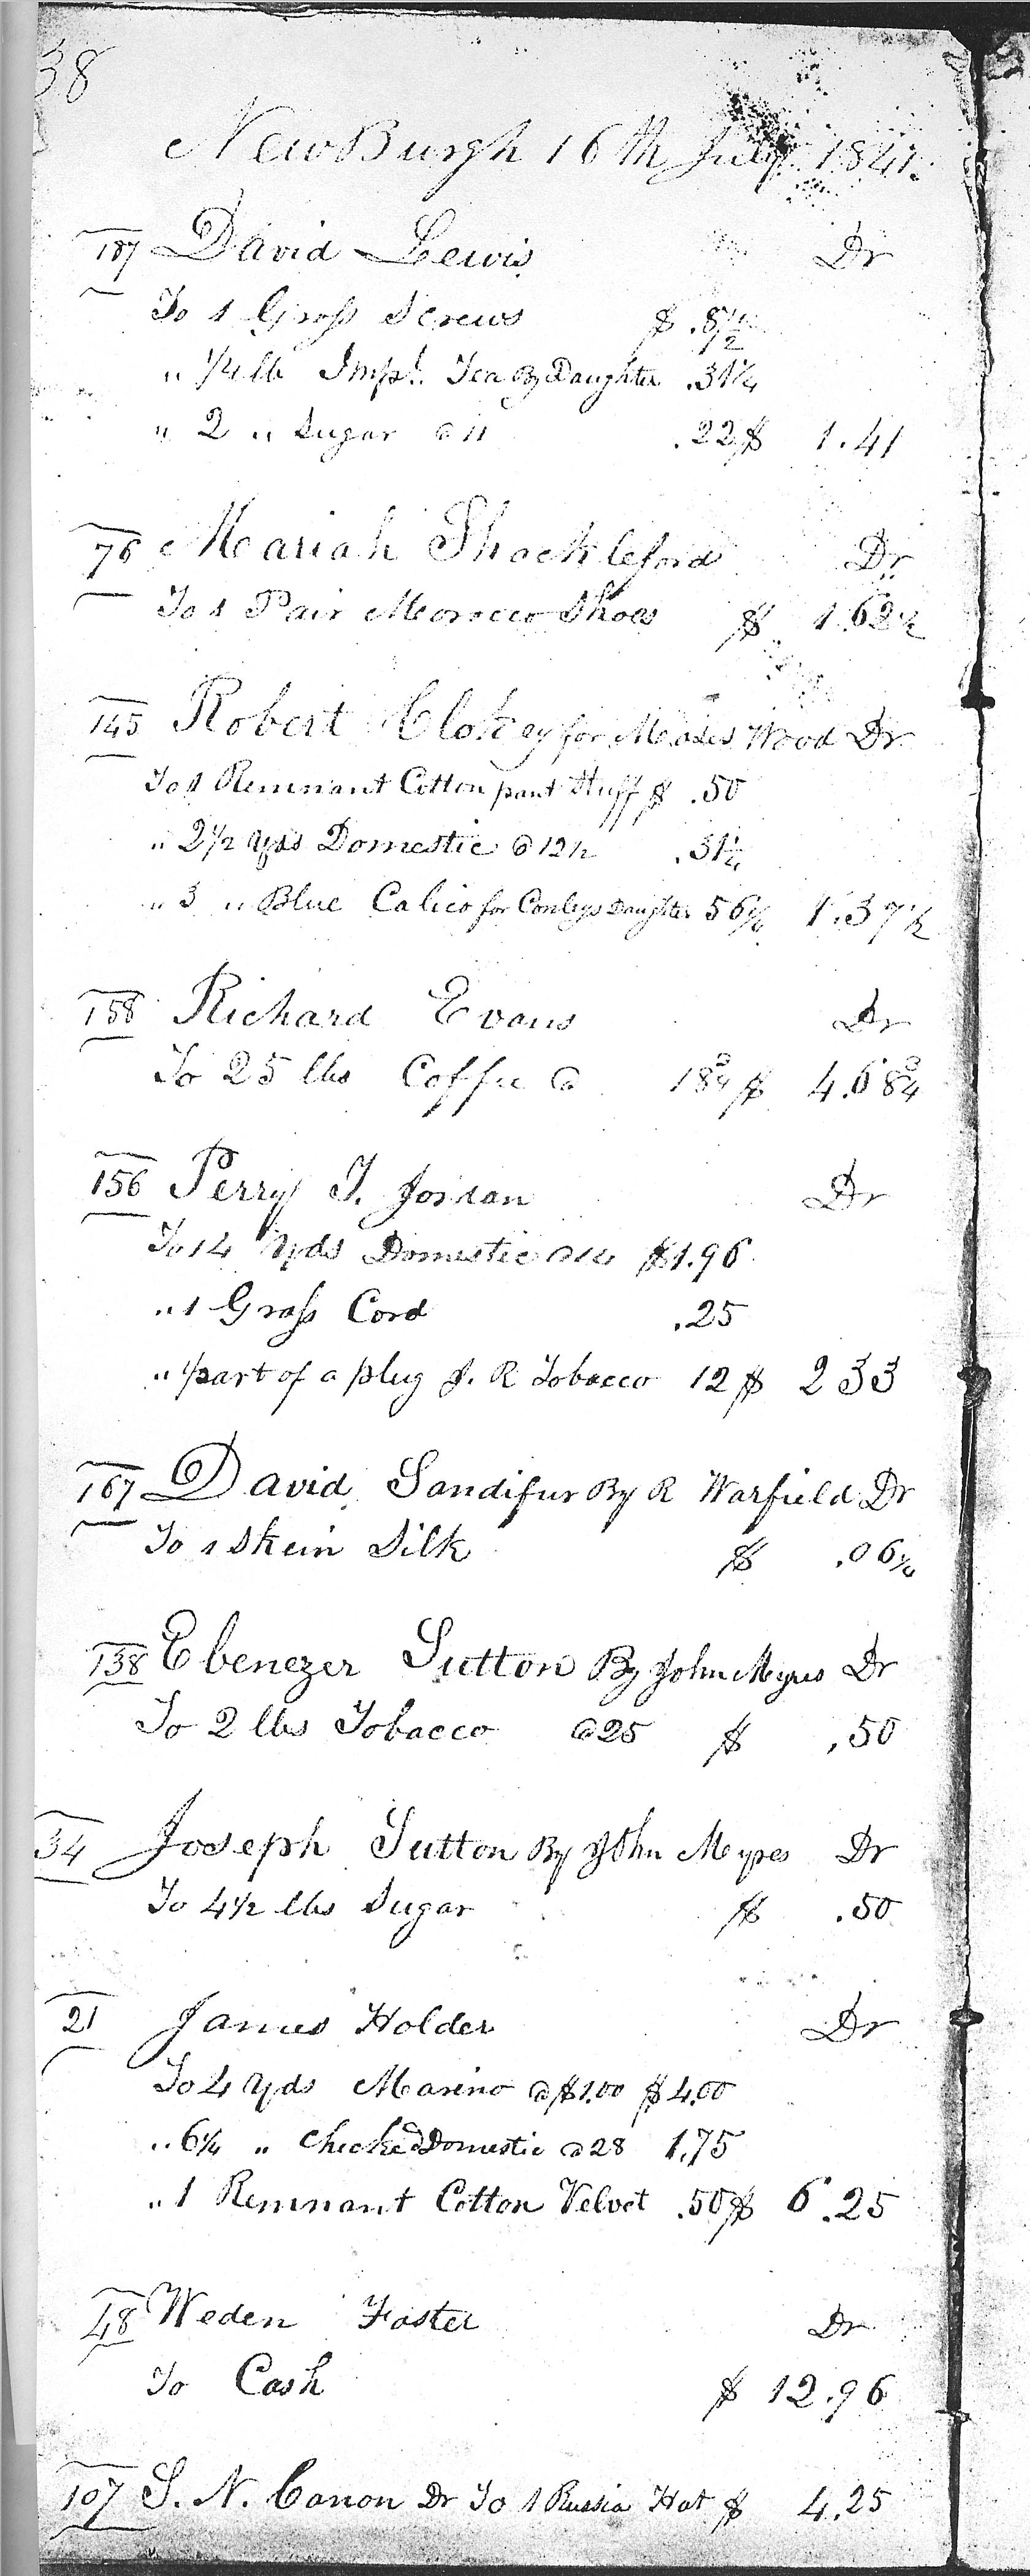 38
NewBurgh 16th July 1841.
187 David Lewis Dr
To 1 Groſs Screws $ .87½
" ¼ lb Impl. Tea By Daughter .31¼
" 2 " Sugar @ 11 .22 $ 1.41
76 Mariah Shackleford Dr
To 1 Pair Morocco Shoes $ 1.62½
145 Robert Clokey for Moses Wood Dr
To 1 Remnant Cotton pant Stuff $ .50
" 2½ yds Domestic @ 12½ .31¼
" 3 " Blue Calico for Conleys Daughter 56¼ 1.37½
158 Richard Evans Dr
To 25 lbs Coffee @ 18¾ $ 4.68¾
156 Perry T. Jordan Dr
To 14 yds Domestic @ 14 $1.96
" 1 Groſs Cord .25
" 1 part of a plug J. R Tobacco 12 $ 2 33
167 David Sandifur By R Warfield Dr
To 1 Skein Silk $ .06¼
138 Ebenezer Sutton By John Myres Dr
To 2 lbs Tobacco @25 $ .50
34 Joseph Sutton By John Myres Dr
To 4½ lbs Sugar $ .50
21 James Holder Dr
To 4 yds Marino @ $1.00 $4.00
" 6¼ " Checked Domestic @ 28 1.75
" 1 Remnant Cotton Velvet .50 $ 6.25
48 Weden Foster Dr
To Cash $ 12.96
107 S. N. Canon Dr To 1 Russia Hat $ 4.25